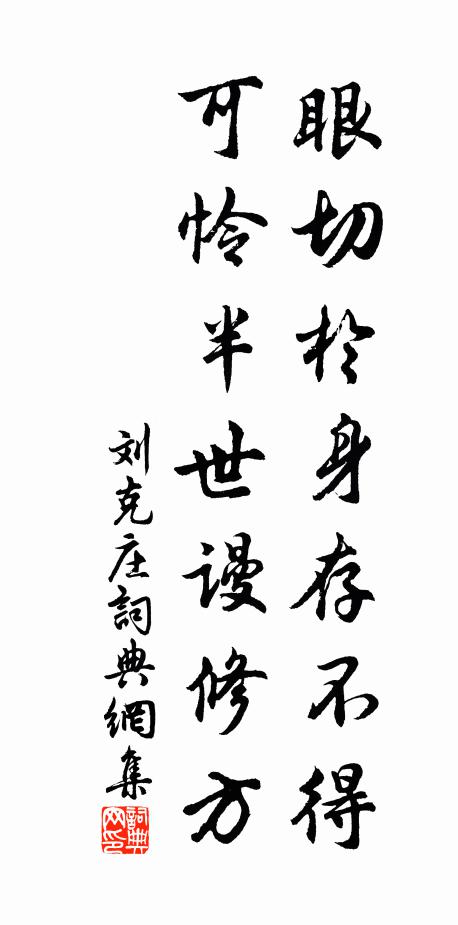 眼切於身存不得
可憐半世謾修方
刘克庄詞典網集
詞典網印